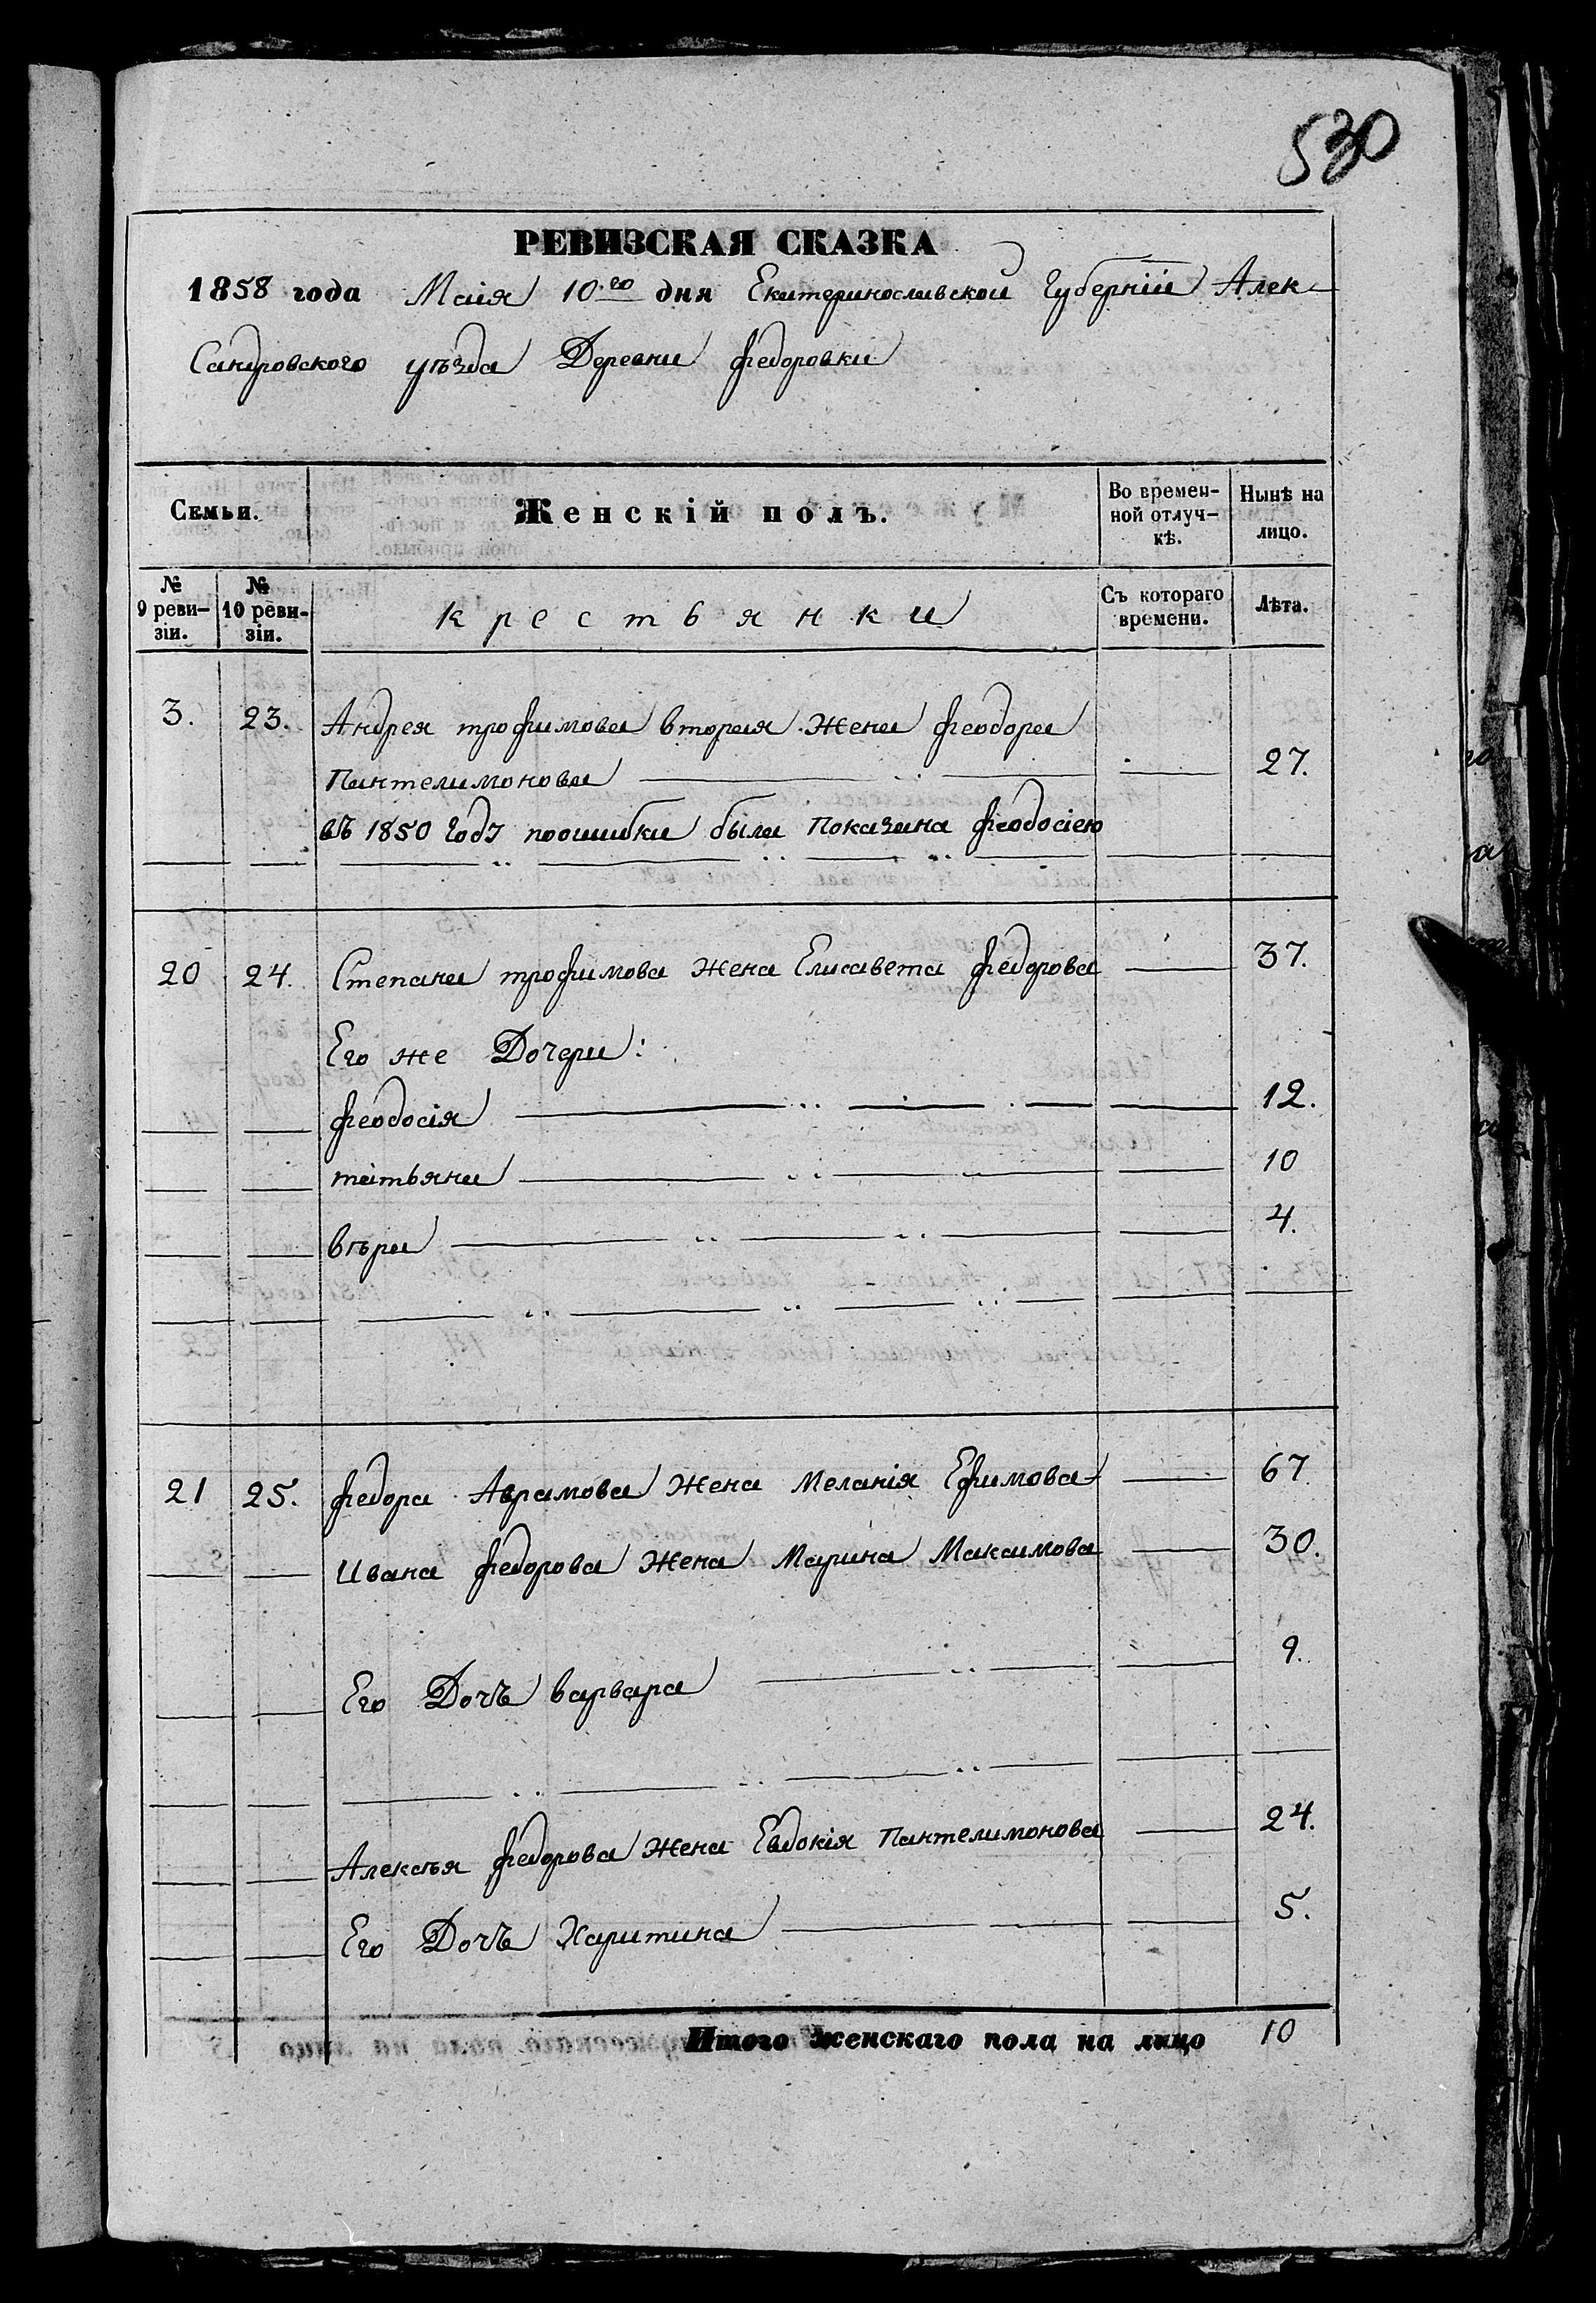 530
РЕВИЗСКАЯ СКАЗКА
1858 года Маія 10го дня Екатеринославской Губерніи Алек-
Сандровского уѣзда Деревни федоровки
Семьи. Женскій полъ. Во времен-ной отлуч-кѣ. Нынѣ на лицо.
№ 9 реви-зіи. № 10 реви-зіи. крестьянки Съ котораго времени. Лѣта.
3. 23. Андрея трофимова вторая жена феодора
Пантелимонова 27.
въ 1850 году поошибки была показана феодосіею
20 24. Степана трофимова жена Елисавета федорова 37.
Его же Дочери:
феодосія 12.
татьяна 10
вѣра 4.
21 25. федора Аврамова жена Меланія Ефимова 67
Ивана федорова жена Марина Максимова 30.
Его Дочь варвара 9.
Алексѣя федорова жена Евдокія Пантелимонова 24.
Его Дочь Харитина 5.
Итого женскаго пола на лицо 10